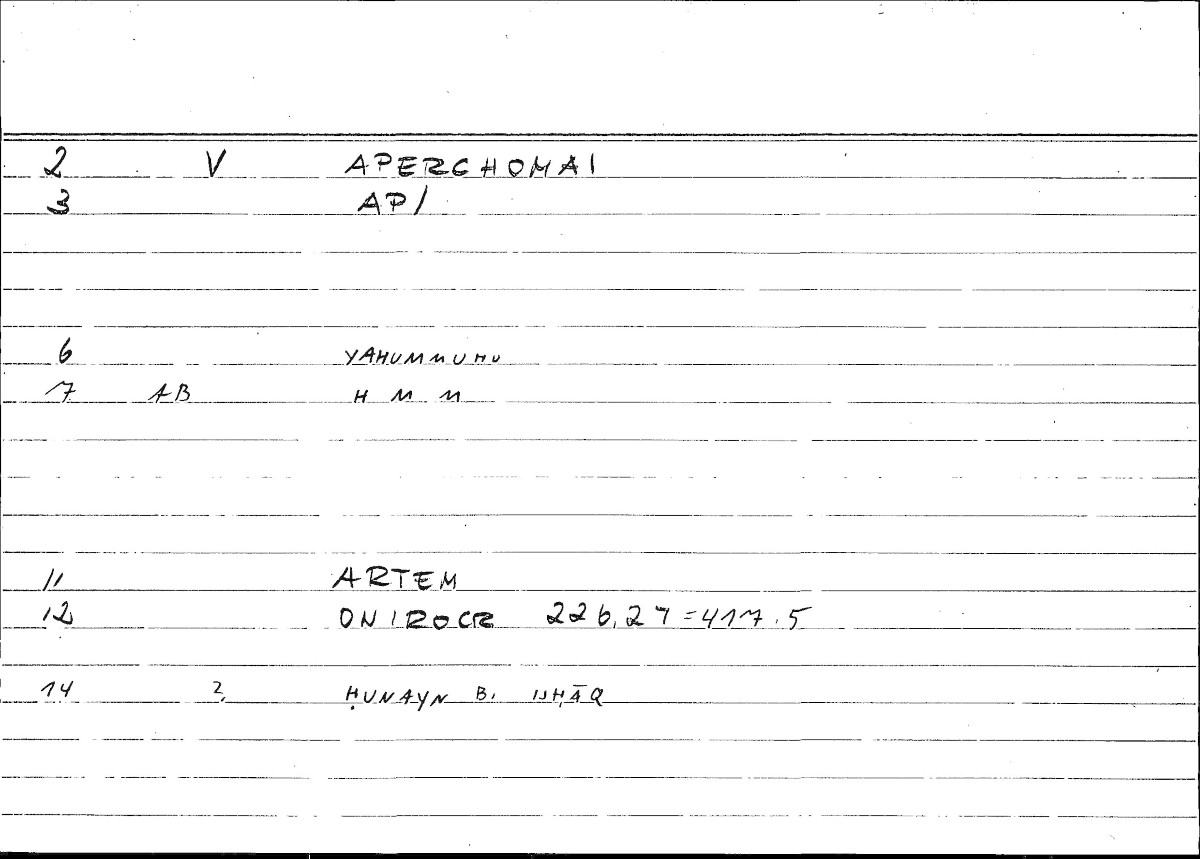 2 V APERCHOMAI
3 AP/
6 YAHUMMUHU
7 AB H M M
11 ARTEM
12 ONIROCR 226,27=417.5
14 2, ḤUNAYN B. ISḤĀQ